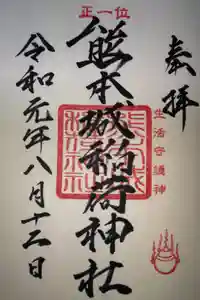 正一位
奉拝
生活守護神
熊本城稲荷神社
令和元年八月十二日